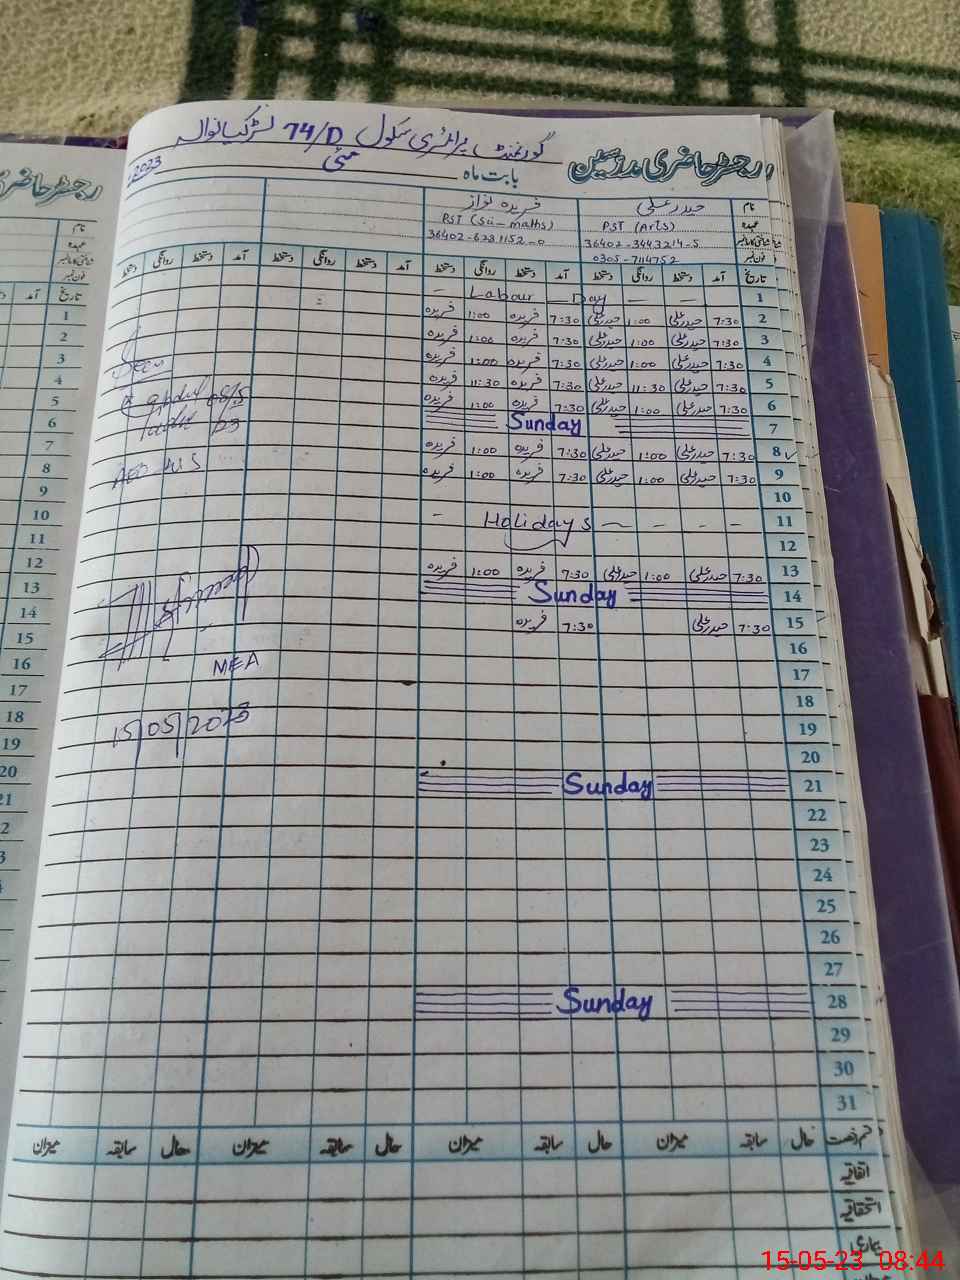 گورنمنٹ پرائمری سکول 74/D لڑکیانوالہ
رجسٹر حاضری مدرسین
بابت ماہ مئی 2023ء
نام حیدر علی فریدہ نواز
عہدہ PST (Arts) PST (Sci-maths)
36402-3443214-5 36402-6231152-0
فون نمبر 0305-7114752
تاریخ آمد دستخط روانگی دستخط آمد دستخط روانگی دستخط آمد دستخط روانگی دستخط آمد دستخط روانگی دستخط
1 — — Labour Day —
2 7:30 حیدر علی 1:00 حیدر علی 7:30 فریدہ 1:00 فریدہ
3 7:30 حیدر علی 1:00 حیدر علی 7:30 فریدہ 1:00 فریدہ
4 7:30 حیدر علی 1:00 حیدر علی 7:30 فریدہ 1:00 فریدہ
5 7:30 حیدر علی 11:30 حیدر علی 7:30 فریدہ 11:30 فریدہ
6 7:30 حیدر علی 1:00 حیدر علی 7:30 فریدہ 1:00 فریدہ
7 Sunday
8 7:30 حیدر علی 1:00 حیدر علی 7:30 فریدہ 1:00 فریدہ
9 7:30 حیدر علی 1:00 حیدر علی 7:30 فریدہ 1:00 فریدہ
10
11 - - - — Holidays -
12
13 7:30 حیدر علی 1:00 حیدر علی 7:30 فریدہ 1:00 فریدہ
14 Sunday
15 7:30 حیدر علی 7:30 فریدہ
16
MEA
17
18
15/05/2023
19
20
21 Sunday
22
23
24
25
26
27
28 Sunday
29
30
31
قسم رخصت حال سابقہ میزان حال سابقہ میزان حال سابقہ میزان حال سابقہ میزان
اتفاقیہ
استحقاقیہ
بیماری
رجسٹر حاضری
نام
عہدہ
فون نمبر
تاریخ آمد
1
2
3
4
5
6
7
8
9
10
11
12
13
14
15
16
17
18
19
20
15-05-23 08:44